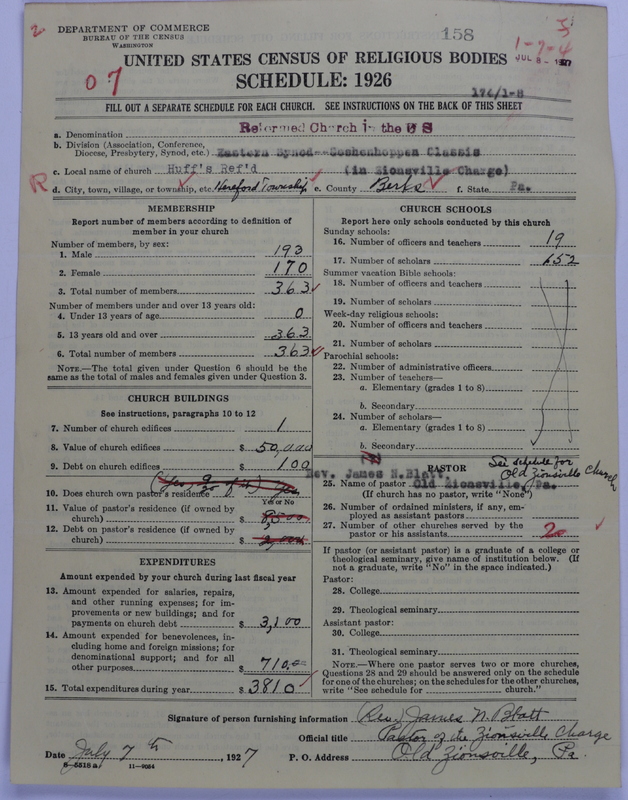 2
DEPARTMENT OF COMMERCE
BUREAU OF THE CENSUS
WASHINGTON
158
1-7-4
JUL 8 - 1927
UNITED STATES CENSUS OF RELIGIOUS BODIES
SCHEDULE: 1926
07
174/1-8
FILL OUT A SEPARATE SCHEDULE FOR EACH CHURCH. SEE INSTRUCTIONS ON THE BACK OF THIS SHEET
a. Denomination Reformed Church in the U S
b. Division (Association, Conference,
Diocese, Presbytery, Synod, etc.) Eastern Synod--Goshenhoppen Classis
c. Local name of church Huff's Ref'd (in Zionsville Charge)
R d. City, town, village, or township, etc. Hereford Township e. County Berks f. State Pa.
MEMBERSHIP
Report number of members according to definition of
member in your church
Number of members, by sex:
1. Male 193
2. Female 170
3. Total number of members 363
Number of members under and over 13 years old:
4. Under 13 years of age 0
5. 13 years old and over 363
6. Total number of members 363
NOTE.—The total given under Question 6 should be
same as the total of males and females given under Question 3.
CHURCH BUILDINGS
See instructions, paragraphs 10 to 12
7. Number of church edifices 1
8. Value of church edifices $ 50,000
9. Debt on church edifices $ 100
10. Does church own pastor's residence
Yes or No
11. Value of pastor's residence (if owned by
church) $ 8,500
12. Debt on pastor's residence (if owned by
church) $
EXPENDITURES
Amount expended by your church during last fiscal year
13. Amount expended for salaries, repairs,
and other running expenses; for im-
provements or new buildings; and for
payments on church debt $ 3,100
14. Amount expended for benevolences, in-
cluding home and foreign missions; for
denominational support; and for all
other purposes $ 710.00
15. Total expenditures during year $ 3810
CHURCH SCHOOLS
Report here only schools conducted by this church
Sunday schools:
16. Number of officers and teachers 19
17. Number of scholars 652
Summer vacation Bible schools:
18. Number of officers and teachers
19. Number of scholars
Week-day religious schools:
20. Number of officers and teachers
21. Number of scholars
Parochial schools:
22. Number of administrative officers
23. Number of teachers—
a. Elementary (grades 1 to 8)
b. Secondary
24. Number of scholars—
a. Elementary (grades 1 to 8)
b. Secondary
PASTOR
See schedule for
Old Zionsville Church
Rev. James N. Blatt,
25. Name of pastor Old Zionsville, Pa.
(If church has no pastor, write "None")
26. Number of ordained ministers, if any, em-
ployed as assistant pastors
27. Number of other churches served by the
pastor or his assistants 2
If pastor (or assistant pastor) is a graduate of a college or
theological seminary, give name of institution below. (If
not a graduate, write "No" in the space indicated.)
Pastor:
28. College
29. Theological seminary
Assistant pastor:
30. College
31. Theological seminary
NOTE.—Where one pastor serves two or more churches,
Questions 28 and 29 should be answered only on the schedule
for one of the churches; on the schedules for the other churches,
write "See schedule for church."
Signature of person furnishing information Rev. James N. Blatt
Official title Pastor of the Zionsville Charge
Date July 7th, 1927 P. O. Address Old Zionsville, Pa.
8-5518a 11-9054